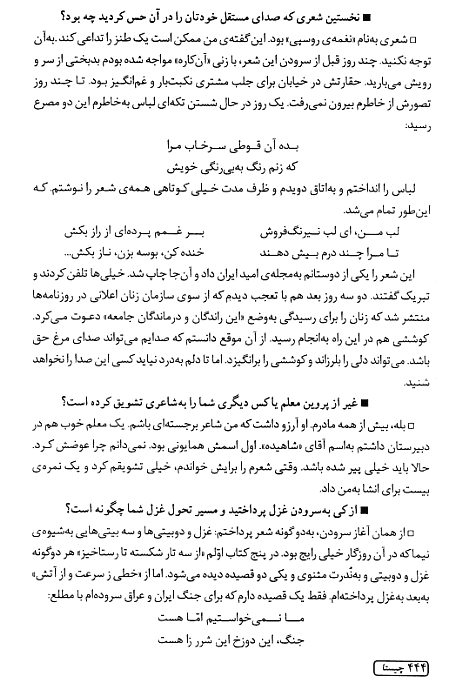 ■ نخستین شعری که صدای مستقل خودتان را در آن حس کردید چه بود؟
□ شعری به‌نام «نغمه‌ی روسپی» بود. این‌گفته‌ی من ممکن است یک طنز را تداعی کند. به‌آن
توجه نکنید. چند روز قبل از سرودن این شعر، با زنی «آن‌کاره» مواجه شده بودم بدبختی از سر و
رویش می‌بارید. حقارتش در خیابان برای جلب مشتری نکبت‌بار و غم‌انگیز بود. تا چند روز
تصورش از خاطرم بیرون نمی‌رفت. یک روز در حال شستن تکه‌ای لباس به‌خاطرم این دو مصرع
رسید:
بده آن قوطی سرخاب مرا
که زنم رنگ به‌بی‌رنگی خویش
لباس را انداختم و به‌اتاق دویدم و ظرف مدت خیلی کوتاهی همه‌ی شعر را نوشتم. که
این‌طور تمام می‌شد.
لب من، ای لب نیرنگ‌فروش بر غمم پرده‌ای از راز بکش
تا مرا چند درم بیش دهند خنده کن، بوسه بزن، ناز بکش...
این شعر را یکی از دوستانم به‌مجله‌ی امید ایران داد و آن‌جا چاپ شد. خیلی‌ها تلفن کردند و
تبریک گفتند. دو سه روز بعد هم با تعجب دیدم که از سوی سازمان زنان اعلانی در روزنامه‌ها
منتشر شد که زنان را برای رسیدگی به‌وضع «این راندگان و درماندگان جامعه» دعوت می‌کرد.
کوششی هم در این راه به‌انجام رسید. از آن موقع دانستم که صدایم می‌تواند صدای مرغ حق
باشد. می‌تواند دلی را بلرزاند و کوششی را برانگیزد. اما تا دلم به‌درد نیاید کسی این صدا را نخواهد
شنید.
■ غیر از پروین معلم یا کس دیگری شما را به‌شاعری تشویق کرده است؟
□ بله، بیش از همه مادرم. او آرزو داشت که من شاعر برجسته‌ای باشم. یک معلم خوب هم در
دبیرستان داشتم به‌اسم آقای «شاهیده». اول اسمش همایونی بود. نمی‌دانم چرا عوضش کرد.
حالا باید خیلی پیر شده باشد. وقتی شعرم را برایش خواندم، خیلی تشویقم کرد و یک نمره‌ی
بیست برای انشا به‌من داد.
■ از کی به‌سرودن غزل پرداختید و مسیر تحول غزل شما چگونه است؟
□ از همان آغاز سرودن، به‌دو گونه شعر پرداختم: غزل و دوبیتی‌ها و سه بیتی‌هایی به‌شیوه‌ی
نیما که در آن روزگار خیلی رایج بود. در پنج کتاب اوّلم «از سه تار شکسته تا رستاخیز» هر دوگونه
غزل و دوبیتی و به‌نُدرت مثنوی و یکی دو قصیده دیده می‌شود. اما از «خطی ز سرعت و از آتش»
به‌بعد به‌غزل پرداخته‌ام. فقط یک قصیده دارم که برای جنگ ایران و عراق سروده‌ام با مطلع:
ما نمی‌خواستیم امّا هست
جنگ، این دوزخ این شرر زا هست
۴۴۴ چیستا